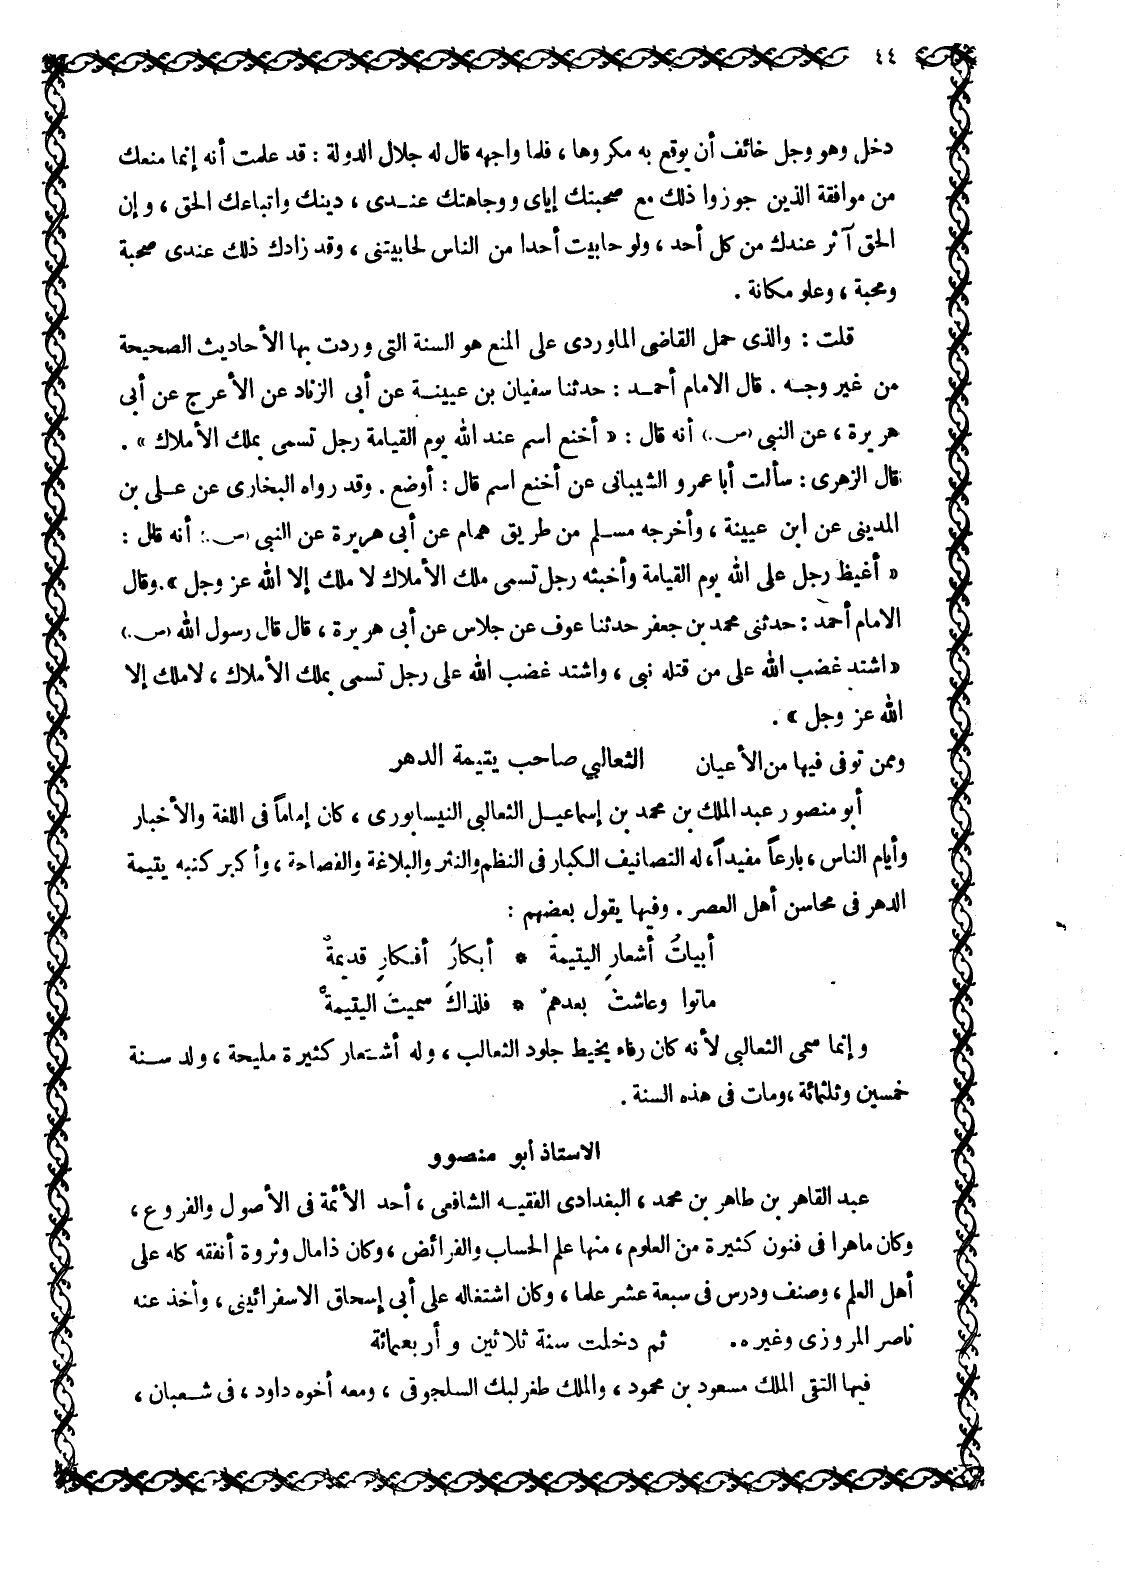 ٤٤
دخل وهو وجل خائف أن يوقع به مكروها ، فلما واجهه قال له جلال الدولة : قد علمت أنه إنما منعك
من موافقة الذين جوزوا ذلك مع صحبتك إياى ووجاهتك عندى ، دينك واتباعك الحق ، وإن
الحق آثر عندك من كل أحد ، ولو حابيت أحدا من الناس لحابيتنى ، وقد زادك ذلك عندى صحبة
ومحبة ، وعلو مكانة .
قلت : والذى حمل القاضى الماوردى على المنع هو السنة التى وردت بها الأحاديث الصحيحة
من غير وجه . قال الامام أحمد : حدثنا سفيان بن عيينة عن أبى الزناد عن الأعرج عن أبى
هريرة ، عن النبى (ص.) أنه قال : « أخنع اسم عند الله يوم القيامة رجل تسمى بملك الأملاك » .
قال الزهرى : سألت أبا عمرو الشيبانى عن أخنع اسم قال : أوضع . وقد رواه البخارى عن على بن
المدينى عن ابن عيينة ، وأخرجه مسلم من طريق همام عن أبى هريرة عن النبى (ص.) أنه قال :
« أغيظ رجل على الله يوم القيامة وأخبثه رجل تسمى ملك الأملاك لا ملك إلا الله عز وجل » . وقال
الامام أحمد : حدثنى محمد بن جعفر حدثنا عوف عن جلاس عن أبى هريرة ، قال قال رسول الله (ص.)
« اشتد غضب الله على من قتله نبى ، واشتد غضب الله على رجل تسمى بملك الأملاك ، لاملك إلا
الله عز وجل » .
وممن توفى فيها من الأعيان الثعالبي صاحب يتيمة الدهر
أبو منصور عبد الملك بن محمد بن إسماعيل الثعالبى النيسابورى ، كان إماماً فى اللغة والأخبار
وأيام الناس ، بارعاً مفيداً ، له التصانيف الكبار فى النظم والنثر والبلاغة والفصاحة ، وأكبر كتبه يتيمة
الدهر فى محاسن أهل العصر . وفيها يقول بعضهم :
أبياتُ أشعارِ اليتيمة * أبكارُ أفكارٍ قديمةْ
ماتوا وعاشتْ بعدهمْ * فلذاكَ سميتْ اليتيمةْ
وإنما سمى الثعالبى لأنه كان رفاء يخيط جلود الثعالب ، وله أشعار كثيرة مليحة ، ولد سنة
خمسين وثلثمائة ، ومات فى هذه السنة .
الاستاذ أبو منصوو
عبد القاهر بن طاهر بن محمد ، البغدادى الفقيه الشافعى ، أحد الأئمة فى الأصول والفروع ،
وكان ماهرا فى فنون كثيرة من العلوم ، منها علم الحساب والفرائض ، وكان ذامال وثروة أنفقه كله على
أهل العلم ، وصنف ودرس فى سبعة عشر علما ، وكان اشتغاله على أبى إسحاق الاسفرائينى ، وأخذ عنه
ناصر المروزى وغيره . ثم دخلت سنة ثلاثين وأربعمائة
فيها التقى الملك مسعود بن محمود ، والملك طغرلبك السلجوقى ، ومعه أخوه داود ، فى شعبان ،